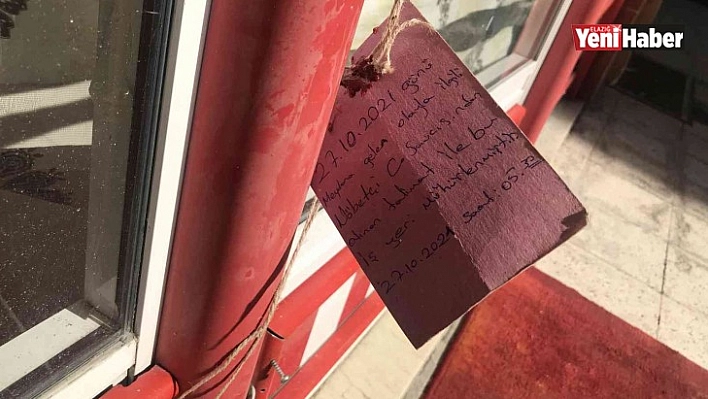 ELAZIĞ
YeniHaber
27.10.2021 günü
Meydana gelen olayla ilgili
Nöbetçi C. Savcısından
alınan talimat ile bu
iş yeri mühürlenmiştir.
27.10.2021 saat: 05.30